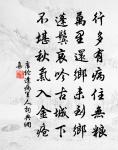 行多有病住無糧
萬里還鄉未到鄉
蓬鬢哀吟古城下
不堪秋氣入金瘡
逢病軍人